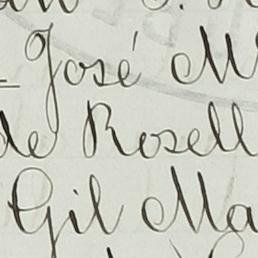 José M
de Rosell
Gil Ma